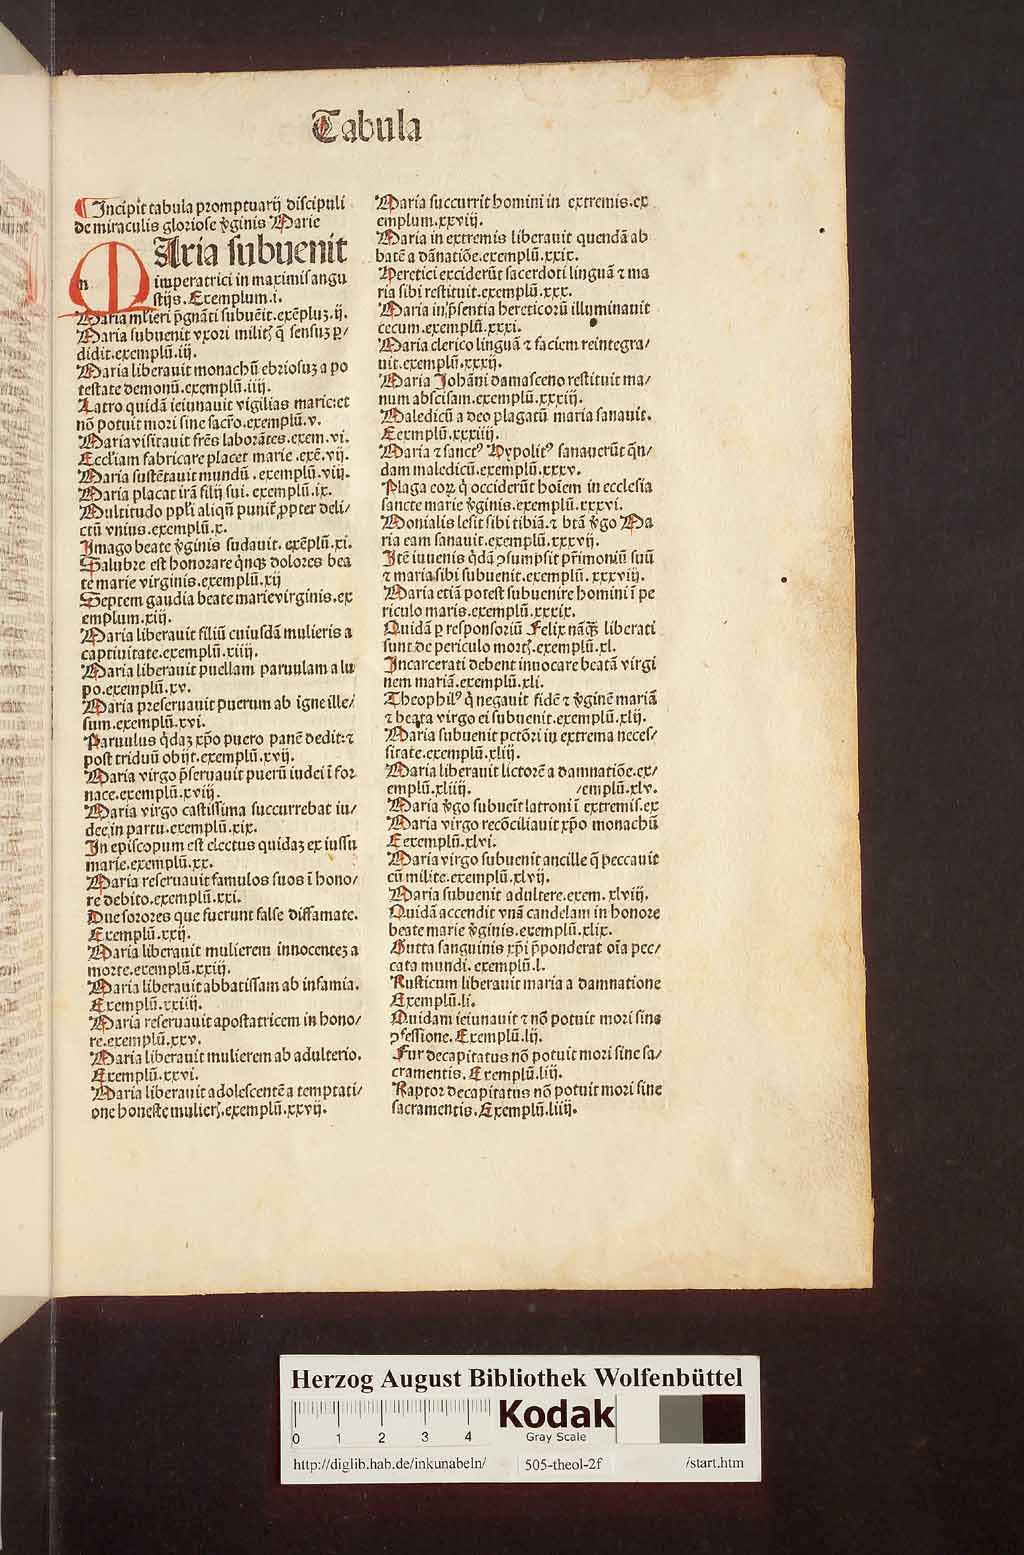 Tabula
¶ Incipit tabula promptuarij discipuli
de miraculis gloriose v̄ginis Marie
MAria subuenit
imperatrici in maximis angu
stijs. Exemplum.i.
Maria mlieri p̄gnāti subuēit.exēpluꝫ.ij.
Maria subuenit vxori militꝭ q̄ sensuꝫ ꝑ/
didit.exemplū.iij.
Maria liberauit monachū ebriosuꝫ a po
testate demonū.exemplū.iiij.
Latro quidā ieiunauit vigilias marie:et
nō potuit mori sine sacr̄o.exemplū.v.
Maria visitauit frēs laborātes.exem.vi.
Eccl̄iam fabricare placet marie .exē.vij.
Maria sustētauit mundū .exemplū.viij.
Maria placat irā filij sui. exemplū.ix.
Multitudo ppl̄i aliqn̄ punit̄ ꝓpter deli/
ctū vnius.exemplū.x.
Imago beate v̄ginis sudauit. exēplū.xi.
Salubre est honorare q̄nqꝫ dolores bea
te marie virginis.exemplū.xij
Septem gaudia beate marie virginis.ex
emplum.xiij.
Maria liberauit filiū cuiusdā mulieris a
captiuitate.exemplū.xiiij.
Maria liberauit puellam paruulam a lu
po.exemplū.xv.
Maria preseruauit puerum ab igne ille/
sum.exemplū.xvi.
Paruulus q̄daꝫ xp̄o puero panē dedit:⁊
post triduū obijt.exemplū.xvij.
Maria virgo p̄seruauit puerū iudei ī for
nace.exemplū.xviij.
Maria virgo castissima succurrebat iu/
dee.in partu.exemplū.xix.
In episcopum est electus quidaꝫ ex iussu
marie.exemplū.xx.
Maria reseruauit famulos suos ī hono/
re debito.exemplū.xxi.
Due sorores que fuerunt false diffamate.
Exemplū.xxij.
Maria liberauit mulierem innocenteꝫ a
morte.exemplū.xxiij.
Maria liberauit abbatissam ab infamia.
Exemplū.xxiiij.
Maria reseruauit apostatricem in hono/
re.exemplū.xxv.
Maria liberauit mulierem ab adulterio.
Exemplū.xxvi.
Maria liberauit adolescentē a temptati/
one honeste mulierꝭ.exemplū.xxvij.
Maria succurrit homini in extremis.ex
emplum.xxviij.
Maria in extremis liberauit quendā ab
batē a dānatiōe.exemplū.xxix.
Heretici exciderūt sacerdoti linguā ⁊ ma
ria sibi restituit.exemplū.xxx.
Maria in p̄sentia hereticorū illuminauit
cecum.exemplū.xxxi.
Maria clerico linguā ⁊ faciem reintegra/
uit.exemplū.xxxij.
Maria Johāni damasceno restituit ma/
num abscisam.exemplū.xxxiij.
Maledicū a deo plagatū maria sanauit.
Eexmplū.xxxiiij.
Maria ⁊ sanctꝰ Hypolitꝰ sanauerūt q̄n/
dam maledicū.exemplū.xxxv.
Plaga eoꝝ q̄ occiderūt hoīem in ecclesia
sancte marie v̄ginis.exemplū.xxxvi.
Monialis lesit sibi tibiā.⁊ btā v̄go Ma
ria eam sanauit.exemplū.xxxvij.
Itē iuuenis q̄dā ꝯsumpsit pr̄imoniū suū
⁊ maria sibi subuenit.exemplū. xxxviij.
Maria etiā potest subuenire homini ī pe
riculo maris.exemplū.xxxix.
Quidā ꝑ responsoriū Felix nāqꝫ liberati
sunt de periculo mortꝭ.exemplū.xl.
Incarcerati debent inuocare beatā virgi
nem mariā.exemplū.xli.
Theophilꝰ q̄ negauit fidē ⁊ v̄ginē mariā
⁊ beata virgo ei subuenit.exemplū.xlij.
Maria subuenit pctōri in extrema neces/
sitate.exemplū.xliij.
Maria liberauit lictorē a damnatiōe.ex/
emplū.xliiij. /emplū.xlv.
Maria v̄go subueīt latroni ī extremis.ex
Maria virgo recōciliauit xp̄o monachū
Eexmplū.xlvi.
Maria virgo subuenit ancille q̄ peccauit
cū milite.exemplū.xlvij.
Maria subuenit adultere.exem. xlviij.
Quidā accendit vnā candelam in honore
beate marie v̄ginis.exemplū.xlix.
Gutta sanguinis xp̄i p̄ponderat oīa pec/
cata mundi. exemplū.l.
Rusticum liberauit maria a damnatione
Exemplū.li.
Quidam ieiunauit ⁊ nō potuit mori sine
ꝯfessione. Exemplū.lij.
Fur decapitatus nō potuit mori sine sa/
cramentis. Exemplū.liij.
Raptor decapitatus nō potuit mori sine
sacramentis. Exemplū.liiij.
Herzog August Bibliothek Wolfenbüttel
0 1 2 3 4
Kodak
Gray Scale
http://diglib.hab.de/inkunabeln/ 505-theol-2f /start.htm